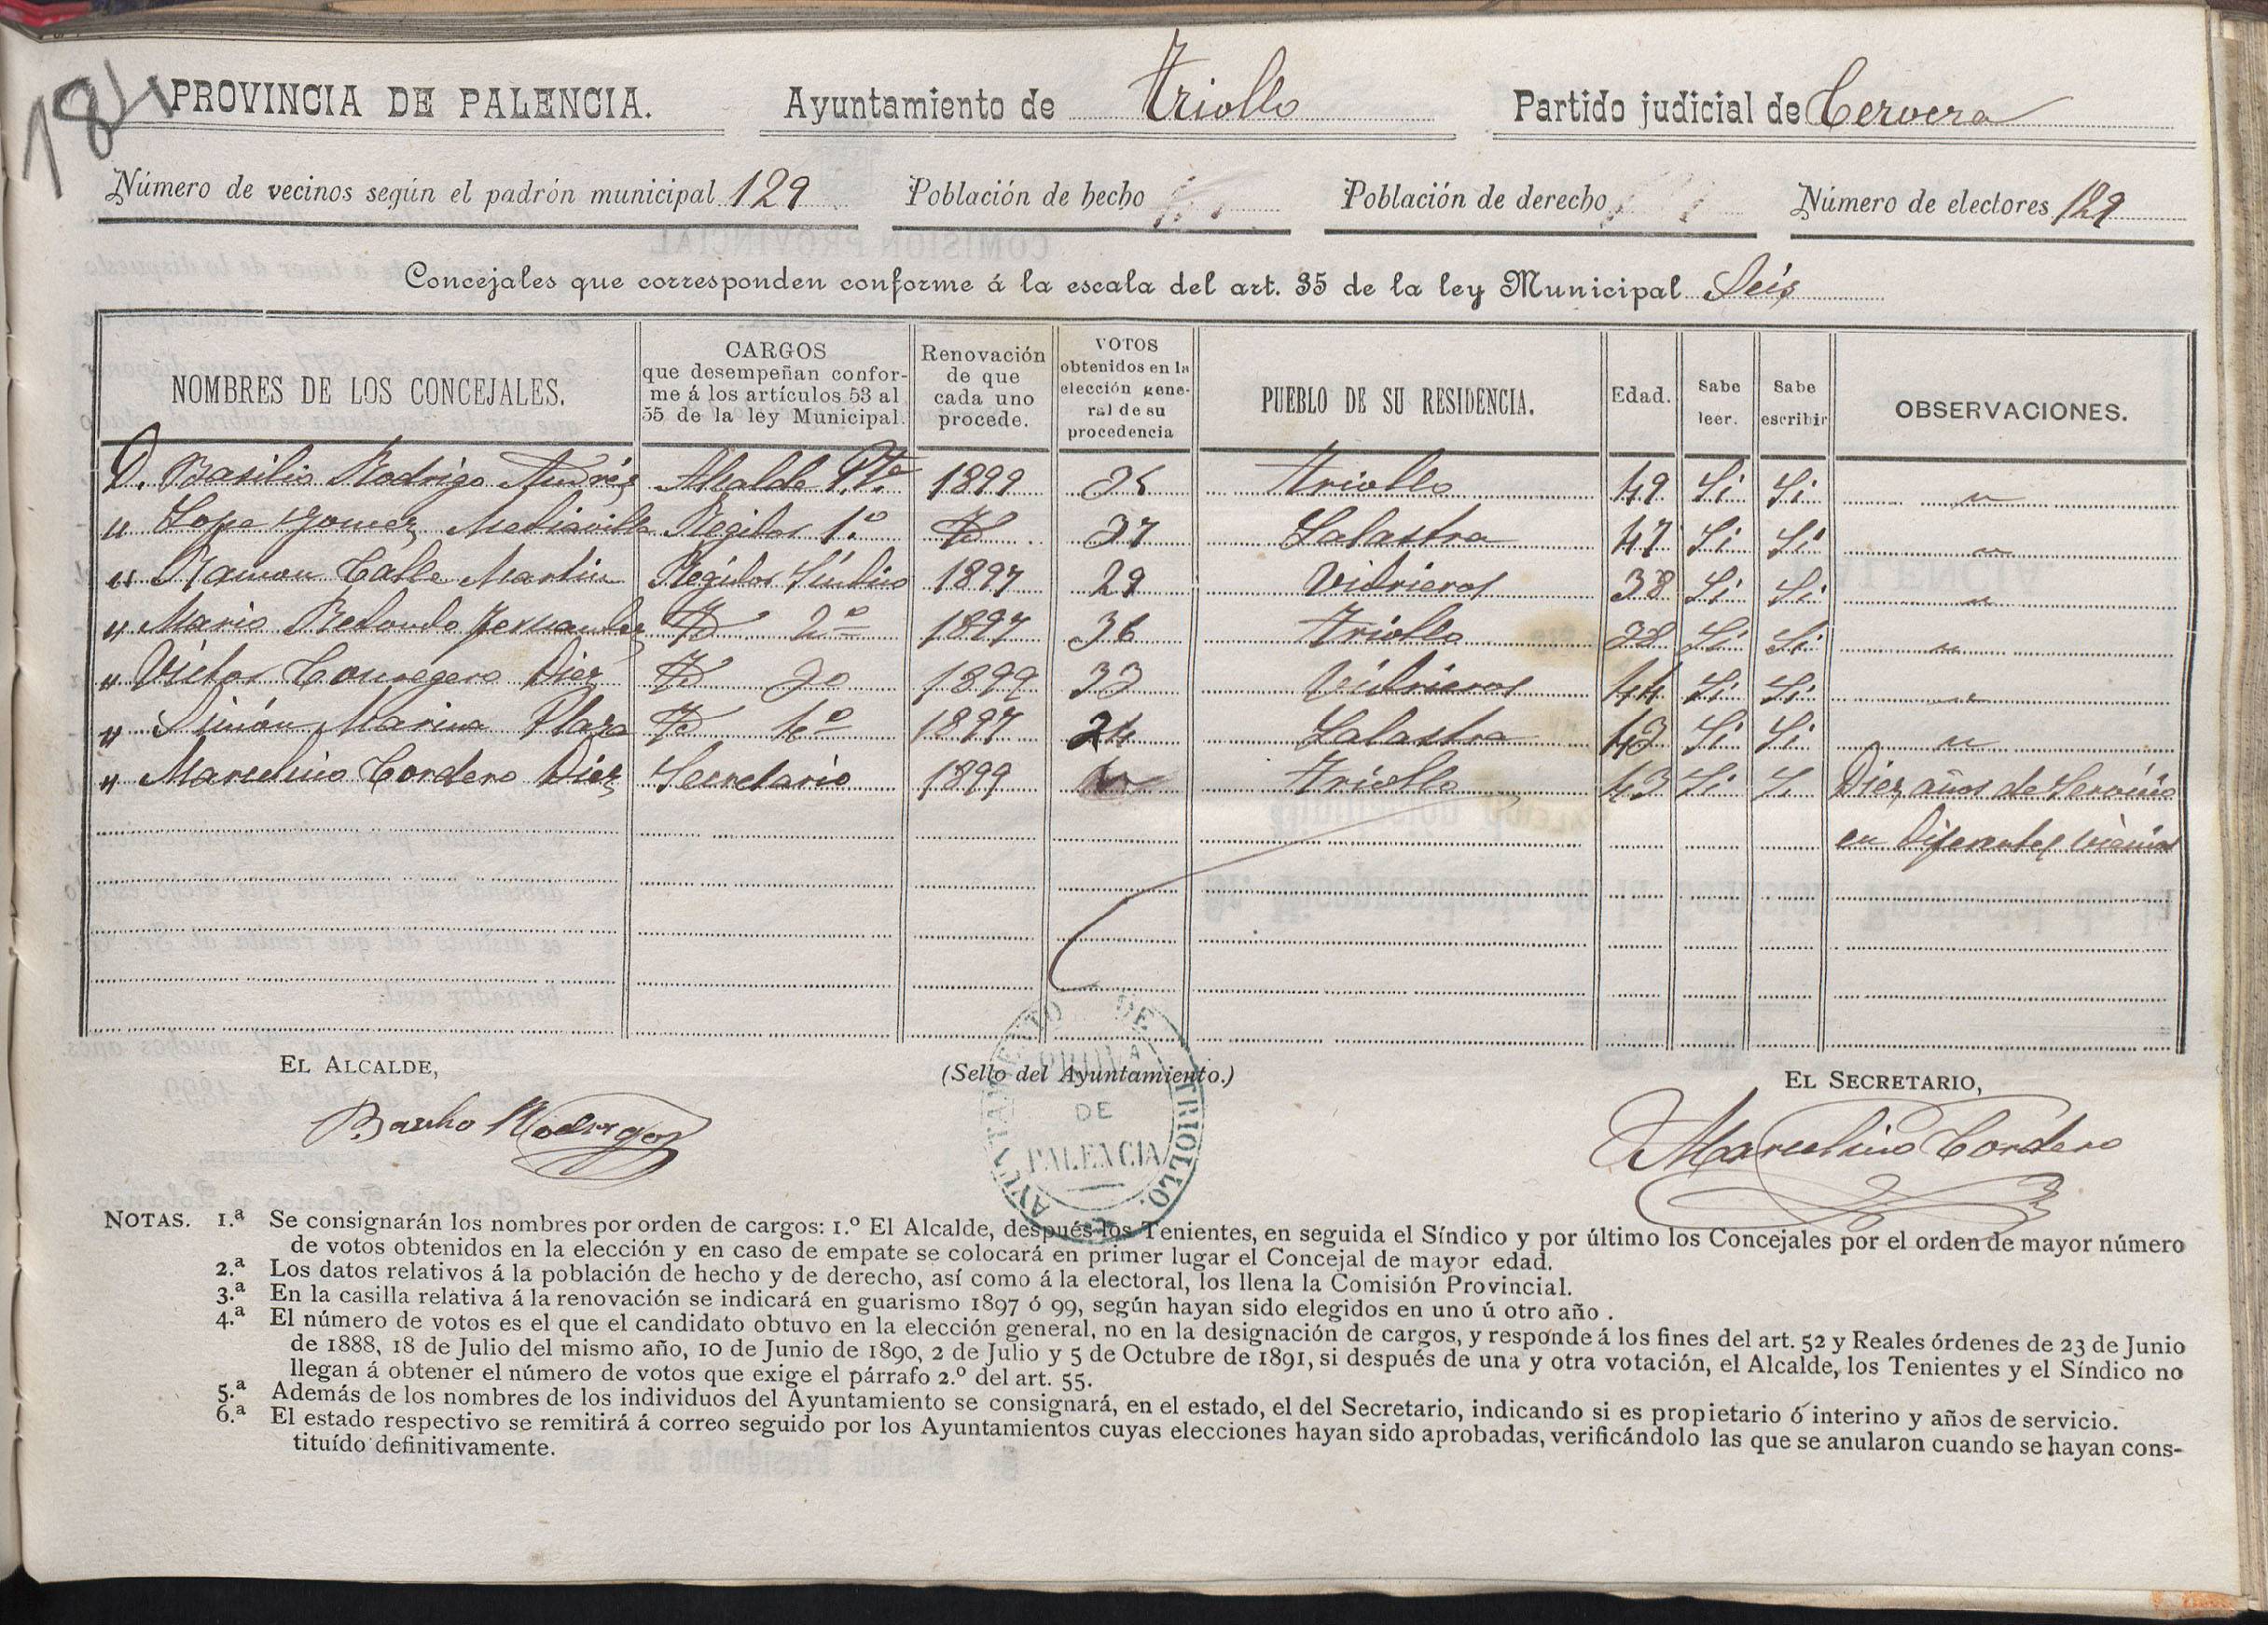 184
PROVINCIA DE PALENCIA. Ayuntamiento de Triollo Partido judicial de Cervera
Número de vecinos según el padrón municipal 129 Población de hecho Población de derecho Número de electores 129
Concejales que corresponden conforme á la escala del art. 35 de la ley Municipal Seis
NOMBRES DE LOS CONCEJALES. CARGOS que desempeñan confor- me á los artículos 53 al 55 de la ley Municipal. Renovación de que cada uno procede. VOTOS obtenidos en la elección gene- ral de su procedencia PUEBLO DE SU RESIDENCIA. Edad. Sabe leer. Sabe escribir OBSERVACIONES.
D. Basilio Rodrigo Andrés Alcalde P.te 1899 Triollo 49 Si Si "
" Lope Gomez Mediavilla Regidor 1.º Yd 37 Lalastra 47 Si Si "
" Ramon Calle Martin Regidor Sindico 1897 29 Vidrieros 38 Si Si "
" Mario Redondo Fernandez Yd 2º 1897 36 Triollo 38 Si Si "
" Victor Conregero Diez Yd 3º 1899 33 Vidrieros 44 Si Si "
" Simón Marina Plaza Yd 4º 1897 24 Lalastra 43 Si Si "
" Marcelino Cordero Diez Secretario 1899 " Triollo 43 Si Si Diez años de Servicio
en diferentes
EL ALCALDE, (Sello del Ayuntamiento.) EL SECRETARIO,
Basilio Rodrigo Marcelino Cordero
AYUNTAMIENTO DE TRIOLLO.
PROV.A
DE
PALENCIA
NOTAS. 1.ª Se consignarán los nombres por orden de cargos: 1.º El Alcalde, después los Tenientes, en seguida el Síndico y por último los Concejales por el orden de mayor número
de votos obtenidos en la elección y en caso de empate se colocará en primer lugar el Concejal de mayor edad.
2.ª Los datos relativos á la población de hecho y de derecho, así como á la electoral, los llena la Comisión Provincial.
3.ª En la casilla relativa á la renovación se indicará en guarismo 1897 ó 99, según hayan sido elegidos en uno ú otro año .
4.ª El número de votos es el que el candidato obtuvo en la elección general, no en la designación de cargos, y responde á los fines del art. 52 y Reales órdenes de 23 de Junio
de 1888, 18 de Julio del mismo año, 10 de Junio de 1890, 2 de Julio y 5 de Octubre de 1891, si después de una y otra votación, el Alcalde, los Tenientes y el Síndico no
llegan á obtener el número de votos que exige el párrafo 2.º del art. 55.
5.ª Además de los nombres de los individuos del Ayuntamiento se consignará, en el estado, el del Secretario, indicando si es propietario ó interino y años de servicio.
6.ª El estado respectivo se remitirá á correo seguido por los Ayuntamientos cuyas elecciones hayan sido aprobadas, verificándolo las que se anularon cuando se hayan cons-
tituído definitivamente.